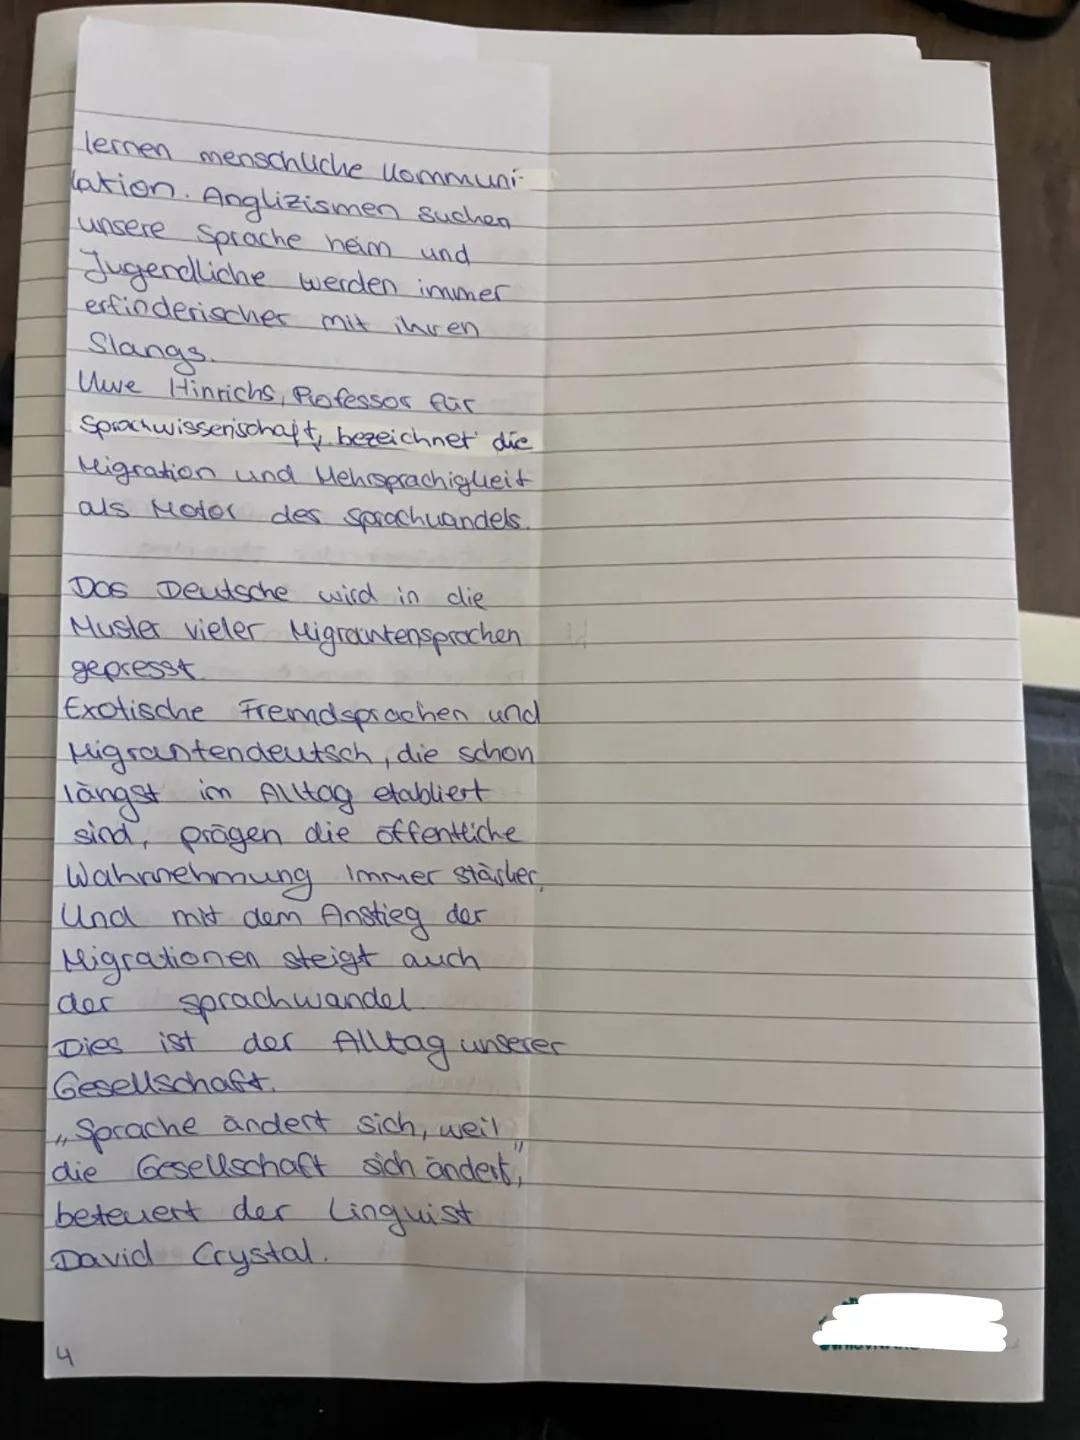 lernen menschliche Kommuni-
kation. Anglizismen suchen
unsere Sprache heim und
Jugendliche werden immer
erfinderischer mit ihren
Slangs.
Uwe Hinrichs, Professor für
Sprachwissenschaft, bezeichnet die
Migration und Mehrsprachigkeit
als Motor des Sprachwandels.
Das Deutsche wird in die
Muster vieler Migrantensprachen
gepresst.
Exotische Fremdsprachen und
Migrantendeutsch, die schon
längst im Alltag etabliert
sind, prägen die öffentliche
Wahrnehmung immer stärker.
Und mit dem Anstieg der
Migrationen steigt auch
der Sprachwandel.
Dies ist der Alltag unserer
Gesellschaft.
„Sprache ändert sich, weil
die Gesellschaft sich ändert",
beteuert der Linguist
David Crystal.
4